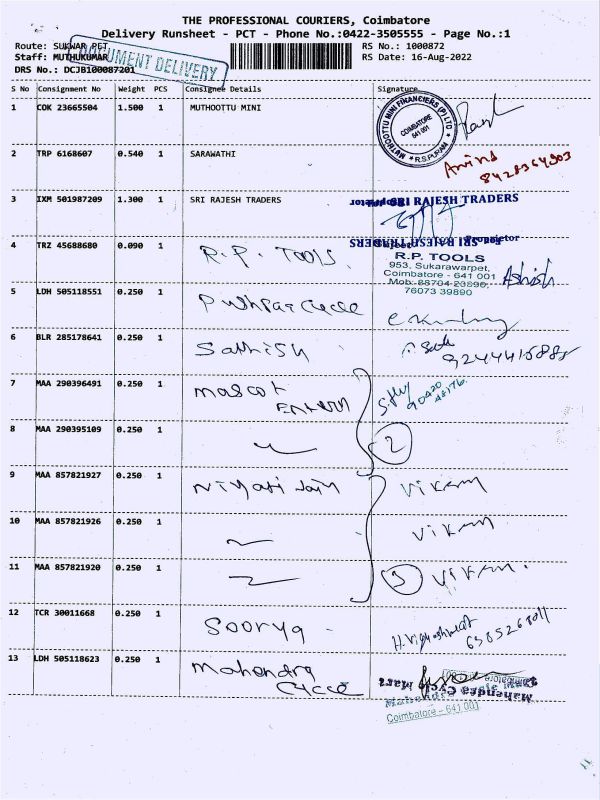 THE PROFESSIONAL COURIERS, Coimbatore
Delivery Runsheet - PCT - Phone No.:0422-3505555 - Page No.:1
Route: SUKWAR PET
RS No.: 1000872
Staff: MUTHUKUMAR
RS Date: 16-Aug-2022
DRS No.: DCJB100087201
DOCUMENT DELIVERY
S No Consignment No Weight PCS Consignee Details Signature
1 COK 23665504 1.500 1 MUTHOOTTU MINI
MUTHOOTTU MINI FINANCIERS (P) LTD
COIMBATORE
641 001
R.S.PURAM
2 TRP 6168607 0.540 1 SARAWATHI
Arvind
8428364903
3 IXM 501987209 1.300 1 SRI RAJESH TRADERS
SRI RAJESH TRADERS
Proprietor
For SRI RAJESH TRADERS
4 TRZ 45688680 0.090 1 R.P. TOOLS
R.P. TOOLS
953, Sukarawarpet,
Coimbatore - 641 001
Mob: 88704 23890,
76073 39890
Ashish
5 LDH 505118551 0.250 1 Pushpa Cycle
6 BLR 285178641 0.250 1 Sathish
7 MAA 290396491 0.250 1 mascot
90420
48176
8 MAA 290395109 0.250 1
2
9 MAA 857821927 0.250 1 Niyati Jain Vikram
10 MAA 857821926 0.250 1 Vikram
11 MAA 857821920 0.250 1 3 Vikram.
12 TCR 30011668 0.250 1 Soorya
13 LDH 505118623 0.250 1 Mahendra
Cycle
Mahendra Cycle Mart
Coimbatore - 641 001